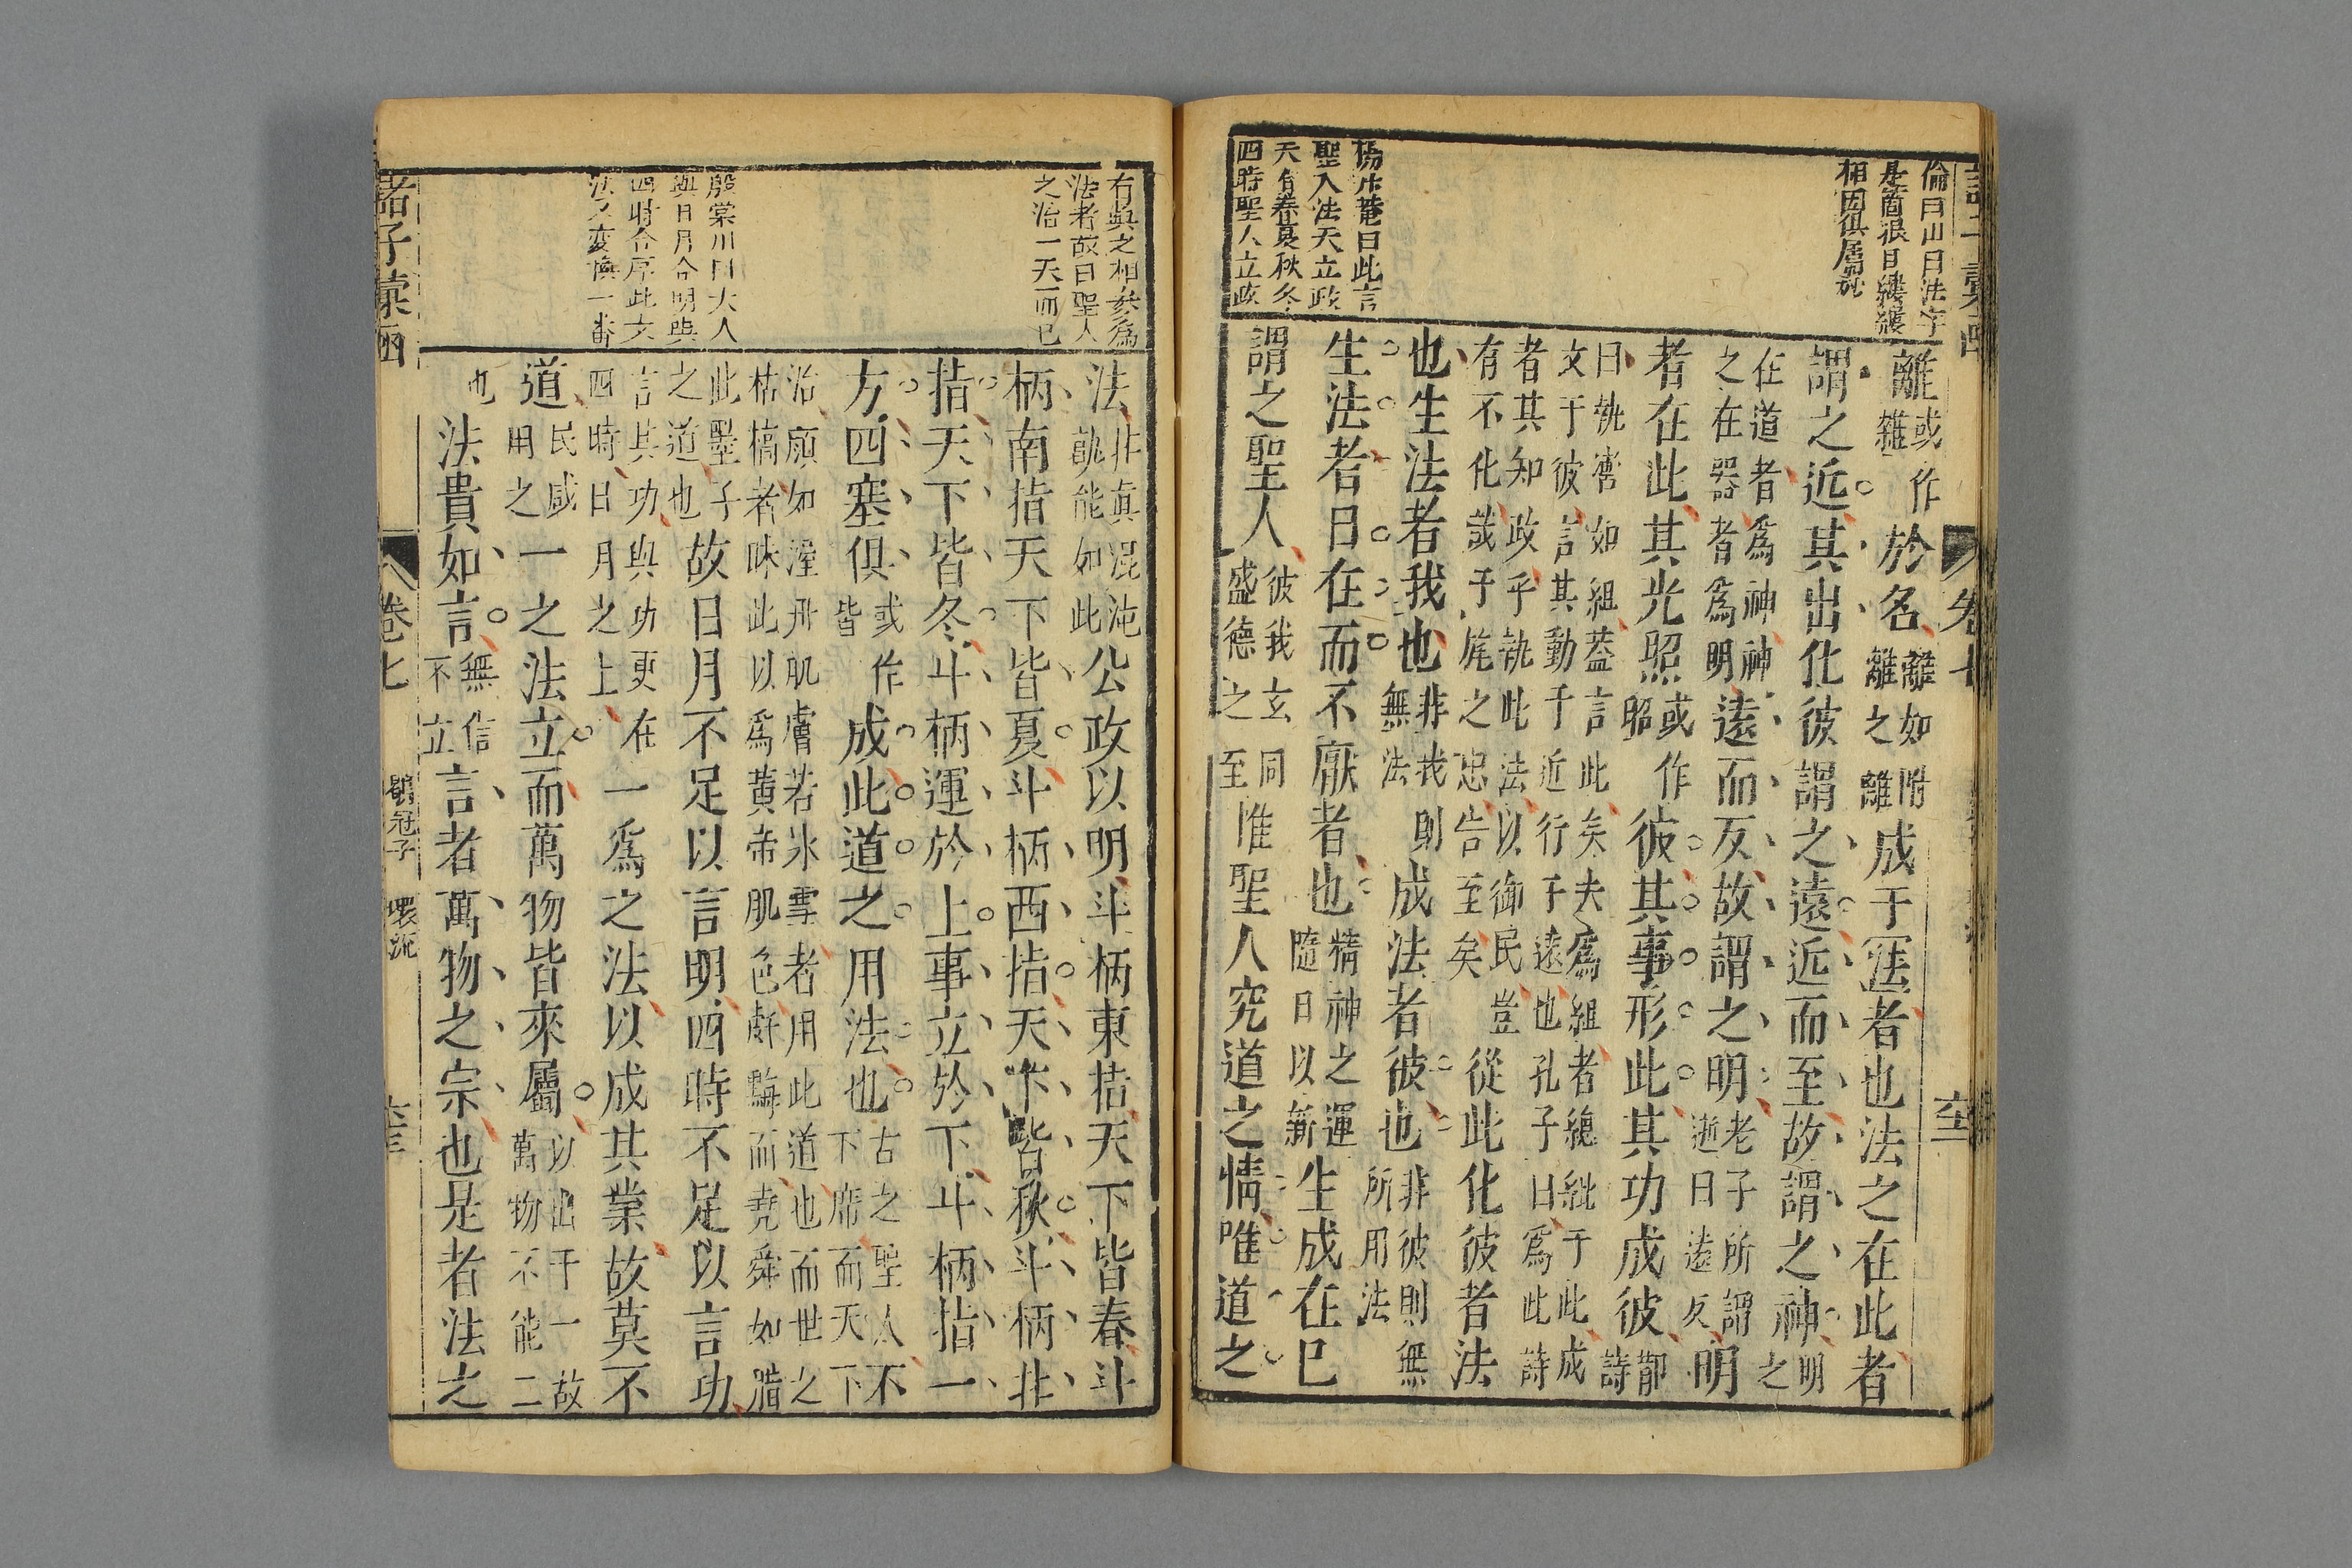 倫曰山曰法字
是箇根目縷縷
相因俱屬說
楊升菴曰此言
聖人法天立政
天有春夏秋冬
四時聖人立政
離或作雜於名離如附離之離成于法者也法之在此者
謂之近其出化彼謂之遠近而至故謂之神明之
在道者爲神神之在器者爲明遠而反故謂之明老子所謂逝曰遠反明
者在此其光照或作昭彼其事形此其功成彼鄁詩
曰執轡如組蓋言此矣夫爲組者總紕于此成文于彼言其動于近行于遠也孔子曰爲此詩
者其知政乎執此法以御民豈有不化哉于旄之忠告至矣從此化彼者法
也生法者我也非我則無法成法者彼也非彼則無所用法
生法者日在而不厭者也精神之運隨日以新生成在已
謂之聖人彼我玄同盛德之至惟聖人究道之情唯道之
卷七
有與之相參爲
法者故曰聖人
之治一天而已
殷棠川曰大人
與日月合明與
四時合序此文
法又變換一番
法非眞混沌孰能如此公政以明斗柄東指天下皆春斗
柄南指天下皆夏斗柄西指天下皆秋斗柄北
指天下皆冬斗柄運於上事立於下斗柄指一
方四塞俱或作皆成此道之用法也古之聖人不下席而天下
治顔如渥丹肌膚若氷雪者用此道也而世之枯槁者昧此以爲黄帝肌色皯黣而堯舜如腊
此墨子之道也故日月不足以言明四時不足以言功
言其功與功更在四時日月之上一爲之法以成其業故莫不
道民咸用之一之法立而萬物皆來屬以出于一故萬物不能二
也法貴如言無信不立言者萬物之宗也是者法之
諸子彙函
卷七
鶡冠子 環流